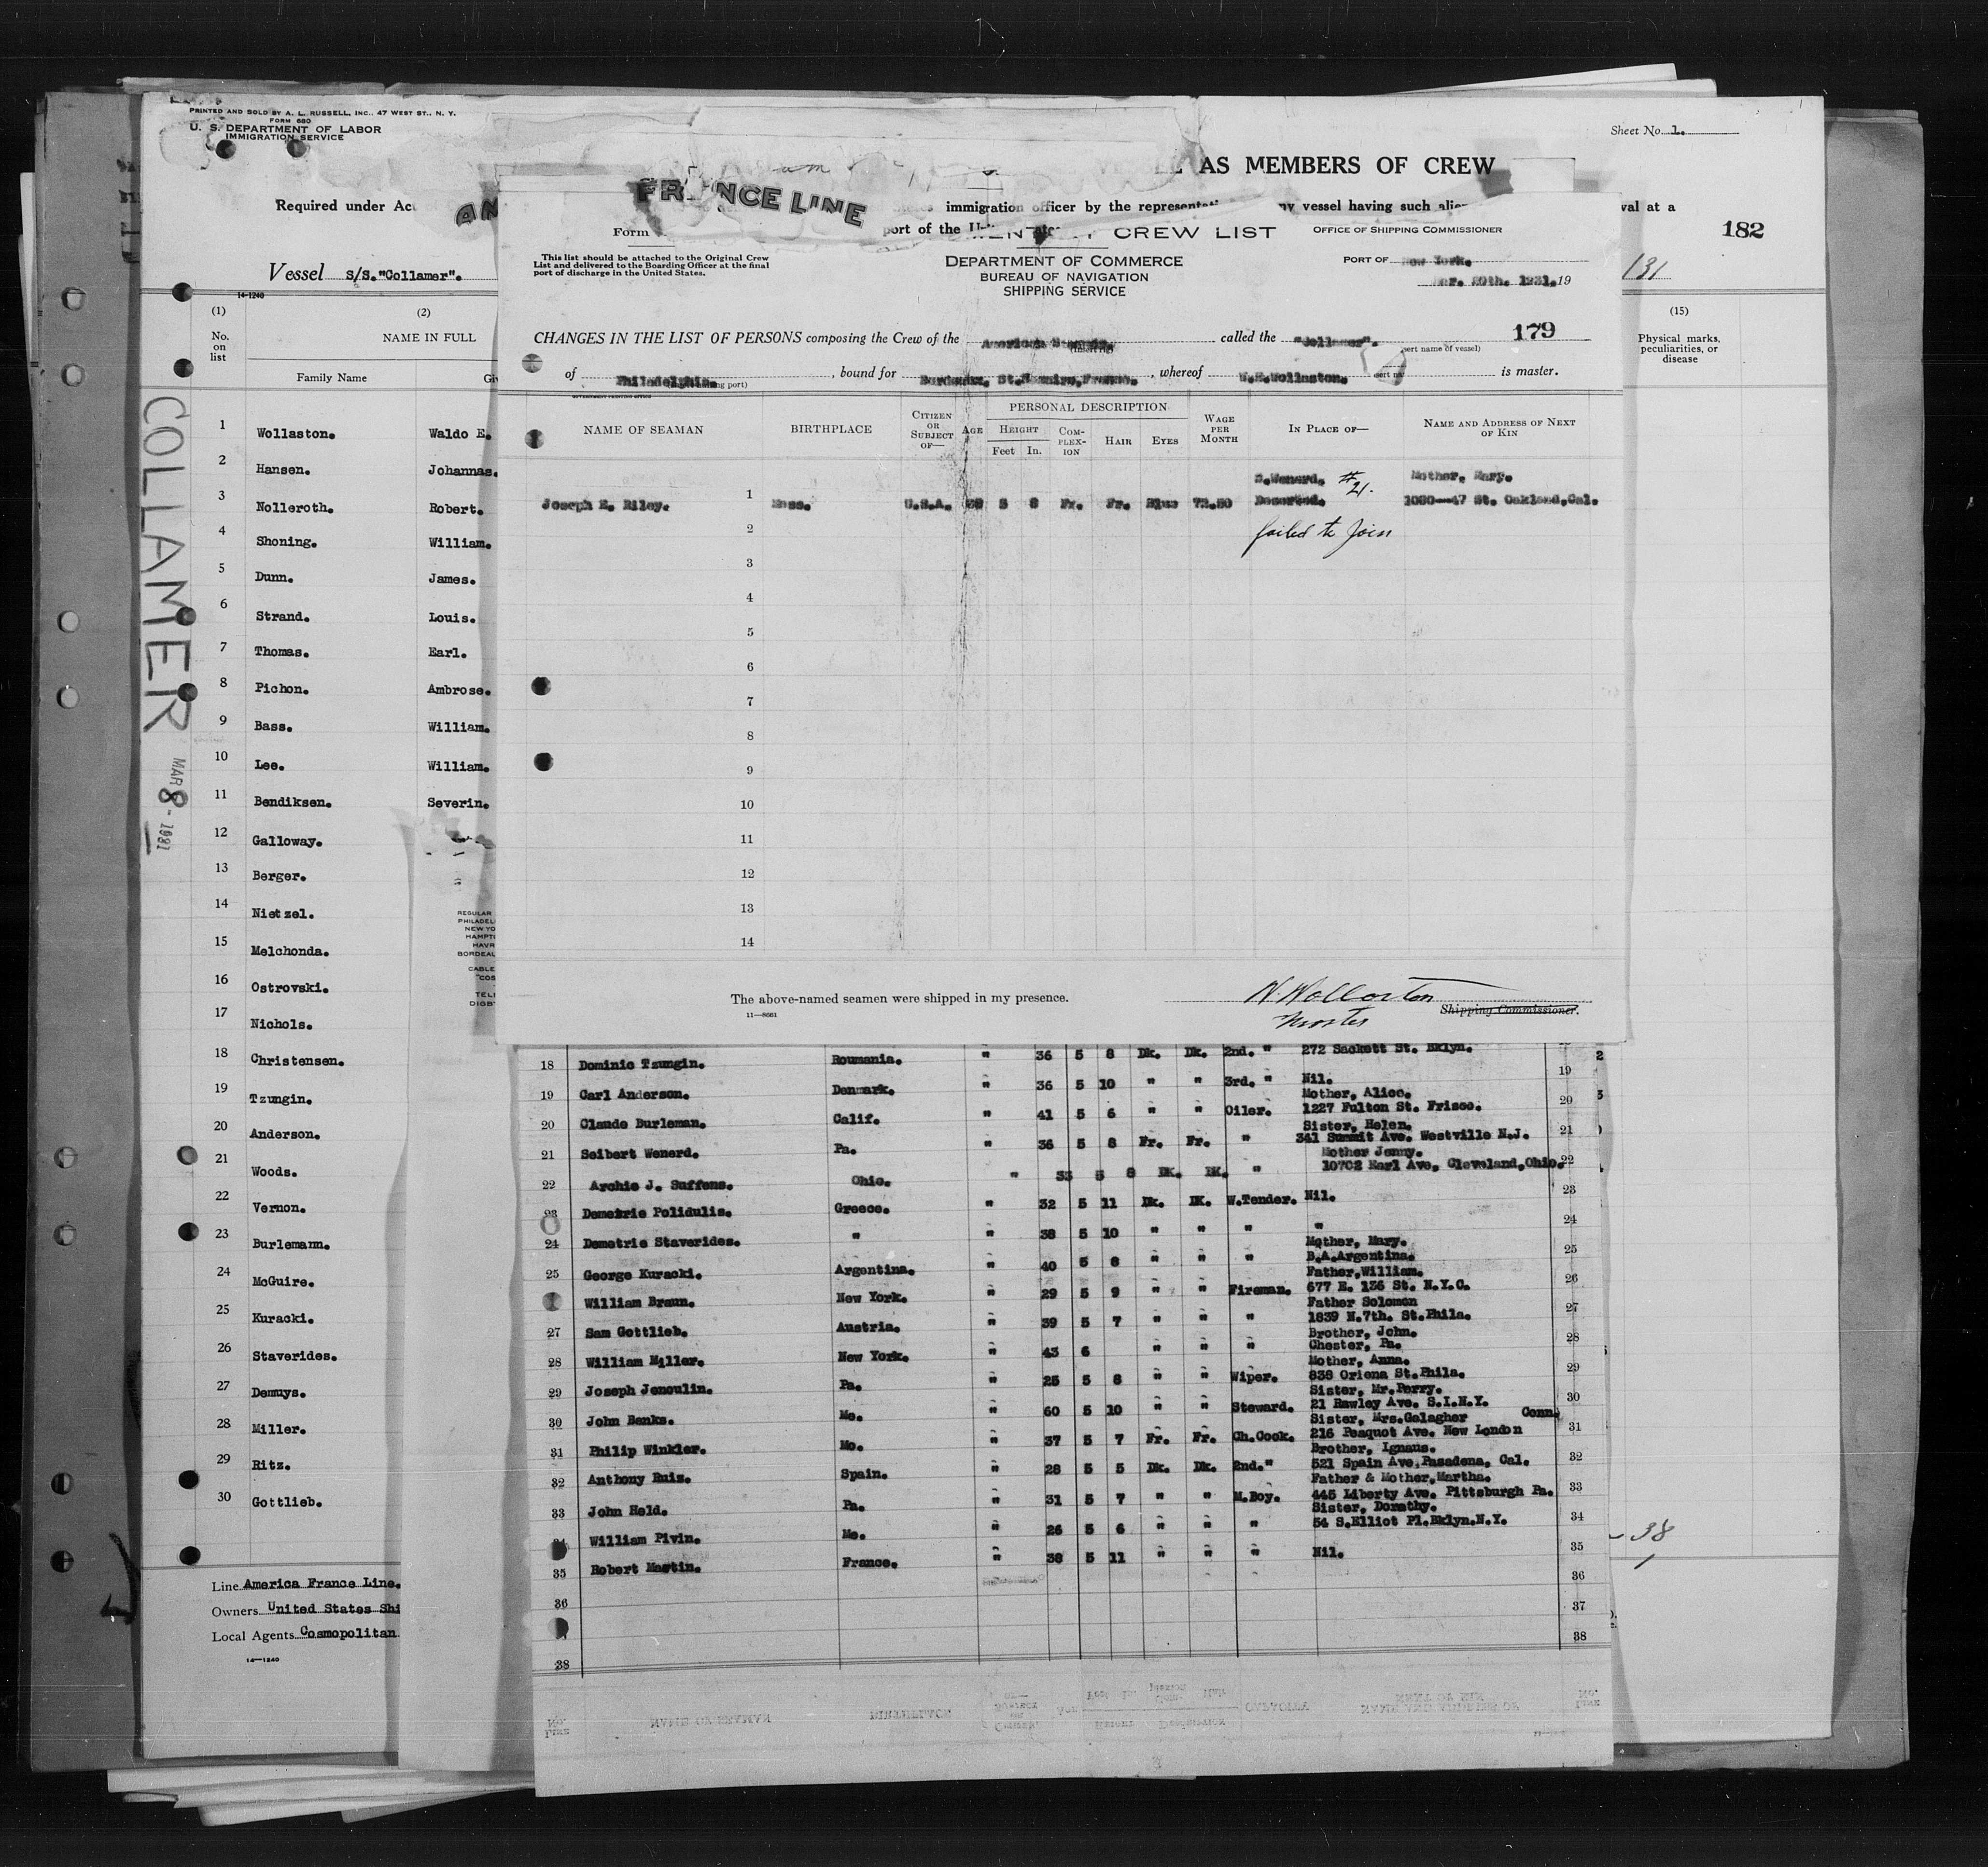 PRINTED AND SOLD BY A. L. RUSSELL, INC., 47 WEST ST., N. Y.
FORM 680
U. S. DEPARTMENT OF LABOR
IMMIGRATION SERVICE
Sheet No. 1.
AS MEMBERS OF CREW
Required under Act
immigration officer by the
any vessel having such alien
val at a
port of the
182
Vessel S/S. "Collamer".
131
14-1240
(1) No. on list
(2) NAME IN FULL
Family Name
(15) Physical marks, peculiarities, or disease
COLLAMER
MAR 8 - 1931
1 Wollaston. Waldo E.
2 Hansen. Johannas.
3 Nolleroth. Robert.
4 Shoning. William.
5 Dunn. James.
6 Strand. Louis.
7 Thomas. Earl.
8 Pichon. Ambrose.
9 Bass. William.
10 Lee. William.
11 Bendiksen. Severin.
12 Galloway.
13 Berger.
14 Nietzel.
15 Melchonda.
16 Ostrovski.
17 Nichols.
18 Christensen.
19 Tzungin.
20 Anderson.
21 Woods.
22 Vernon.
23 Burlemann.
24 McGuire.
25 Kuracki.
26 Staverides.
27 Demuys.
28 Miller.
29 Ritz.
30 Gottlieb.
Line America France Line.
Owners United States Shi
Local Agents Cosmopolitan
14—1240
FRANCE LINE
Form
CREW LIST
OFFICE OF SHIPPING COMMISSIONER
This list should be attached to the Original Crew
List and delivered to the Boarding Officer at the final
port of discharge in the United States.
DEPARTMENT OF COMMERCE
BUREAU OF NAVIGATION
SHIPPING SERVICE
PORT OF New York.
Mar. 20th. 1931. 19
179
CHANGES IN THE LIST OF PERSONS composing the Crew of the American Steamer. called the "Collamer".
of Philadelphia. , bound for Bordeaux, St.Nazaire,France. , whereof W.E.Wollaston. is master.
NAME OF SEAMAN
BIRTHPLACE
CITIZEN OR SUBJECT OF—
AGE
PERSONAL DESCRIPTION
HEIGHT
Feet In.
COMPLEXION
HAIR
EYES
WAGE PER MONTH
IN PLACE OF—
NAME AND ADDRESS OF NEXT OF KIN
S.Wenerd. #21. Mother, Mary.
Joseph E. Riley. 1 Mass. U.S.A. 5 8 Fr. Fr. Blue 72.50 Deserted. 1080--47 St. Oakland,Cal.
2 failed to join
3
4
5
6
7
8
9
10
11
12
13
14
The above-named seamen were shipped in my presence.
W. Wollaston
Master
Shipping Commissioner.
11—8661
REGULAR
PHILADEL
NEW YO
HAMPT
HAVR
BORDEAU
CABLE
"COS
TEL
DIGB
18 Dominic Tzungin. Roumania. " 36 5 8 Dk. Dk. 2nd. " 272 Sackett St. Bklyn.
19 Carl Anderson. Denmark. " 36 5 10 " " 3rd. " Nil. 19
Mother, Alice.
20 Claude Burleman. Calif. " 41 5 6 " " Oiler. 1227 Fulton St. Frisco. 20
Sister, Helen.
21 Seibert Wenerd. Pa. " 36 5 8 Fr. Fr. " 341 Summit Ave. Westville N.J. 21
Mother Jenny.
22 Archie J. Suffens. Ohio. " 33 5 8 DK. DK. " 10702 Earl Ave. Cleveland,Ohio. 22
23 Demetrie Polidulis. Greece. " 32 5 11 Dk. DK. W.Tender. Nil. 23
24 Demetrie Staverides. " " 38 5 10 " " " " 24
Mother, Mary.
25 George Kuracki. Argentina. " 40 5 8 " " " B.A.Argentina. 25
Father,William.
William Braun. New York. " 29 5 9 " " Fireman. 677 E. 136 St. N.Y.C. 26
Father Solomon
27 Sam Gottlieb. Austria. " 39 5 7 " " " 1839 N.7th. St.Phila. 27
Brother, John.
28 William Miller. New York. " 43 6 " " " Chester, Pa. 28
Mother, Anna.
29 Joseph Jenoulin. Pa. " 25 5 8 " " Wiper. 838 Oriena St.Phila. 29
Sister, Mr.Perry.
30 John Banks. Me. " 60 5 10 " " Steward. 21 Rawley Ave. S.I.N.Y. 30
Sister, Mrs.Galagher Conn.
31 Philip Winkler. Mo. " 37 5 7 Fr. Fr. Ch.Cook. 216 Peaquot Ave. New London 31
Brother, Ignaus.
32 Anthony Ruiz. Spain. " 28 5 5 Dk. Dk. 2nd." 521 Spain Ave,Pasadena, Cal. 32
Father & Mother,Martha.
33 John Held. Pa. " 31 5 7 " " M.Boy. 445 Liberty Ave. Pittsburgh Pa. 33
Sister, Dorothy.
William Pivin. Me. " 26 5 6 " " " 54 S.Elliot Pl.Bklyn.N.Y. 34
35 Robert Martin. France. " 38 5 11 " " " Nil. 35
36 36
37
38 38
38